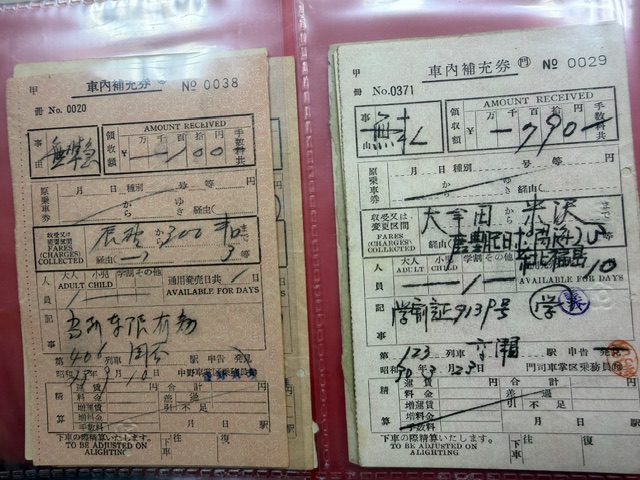 甲 車内補充券 No 0038
冊 No. 0020
事由 無準急
領収額 AMOUNT RECEIVED
万 千 百 拾 円 手数料共
¥ 100
原乗車券 月 日 種別 号 等 円
から ゆき 経由( )
収受又は変更区間
FARES (CHARGES) COLLECTED
から 300 まで
経由( ) 3 等
人員 大人 小児 学割 その他 通用発売日共 1 日
ADULT CHILD AVAILABLE FOR DAYS
1
記事
当列車限有効
第 406 列車 駅 申告 発見
昭和 年 月 10 日 中野車掌区乗務員
精算 運賃 合計 円
料金 差過
増運賃 引不足
増料金
手数料 月 日 駅
下車の際精算いたします。 往 復
TO BE ADJUSTED ON ALIGHTING 下車
甲 車内補充券 門 No 0029
冊 No.0371
事由 無札
領収額 AMOUNT RECEIVED
万 千 百 拾 円 手数料共
¥ 790
原乗車券 月 日 種別 号 等 円
から ゆき 経由( )
収受又は変更区間
FARES (CHARGES) COLLECTED
大牟田 から 米沢 まで
経由(
福島
人員 大人 小児 学割 その他 通用発売日共 10 日
ADULT CHILD AVAILABLE FOR DAYS
1
記事
学割証9139号 学
第 123 列車 駅 申告 発見
昭和 30 年 3 月 23 日 門司車掌区乗務員
精算 運賃 合計 円
料金 差過
増運賃 引不足
増料金
手数料 月 日 駅
下車の際精算いたします。 往 復
TO BE ADJUSTED ON ALIGHTING 下車